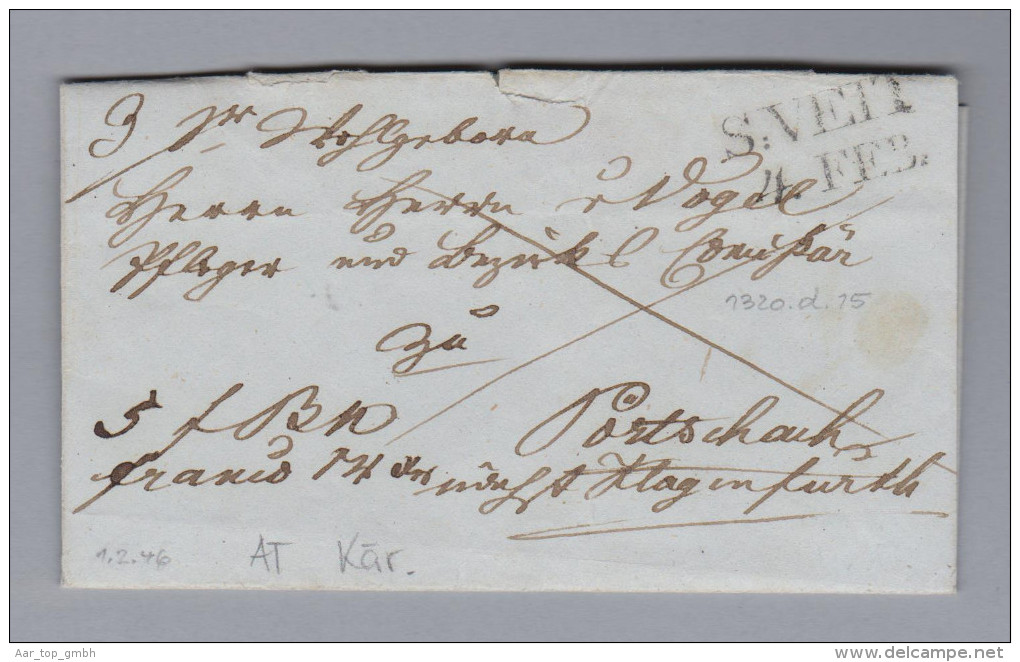 S: VEIT
4. FEB.
Wohlgeborn
Herrn Herrn v Vogel
Pfleger und Bezirks Comißär
1320.d.15
zu
5 f BN Pörtschach
franco nächst Klagenfurth
1.2.46 AT Kär.
Aar_top_gmbh
delcampe.net